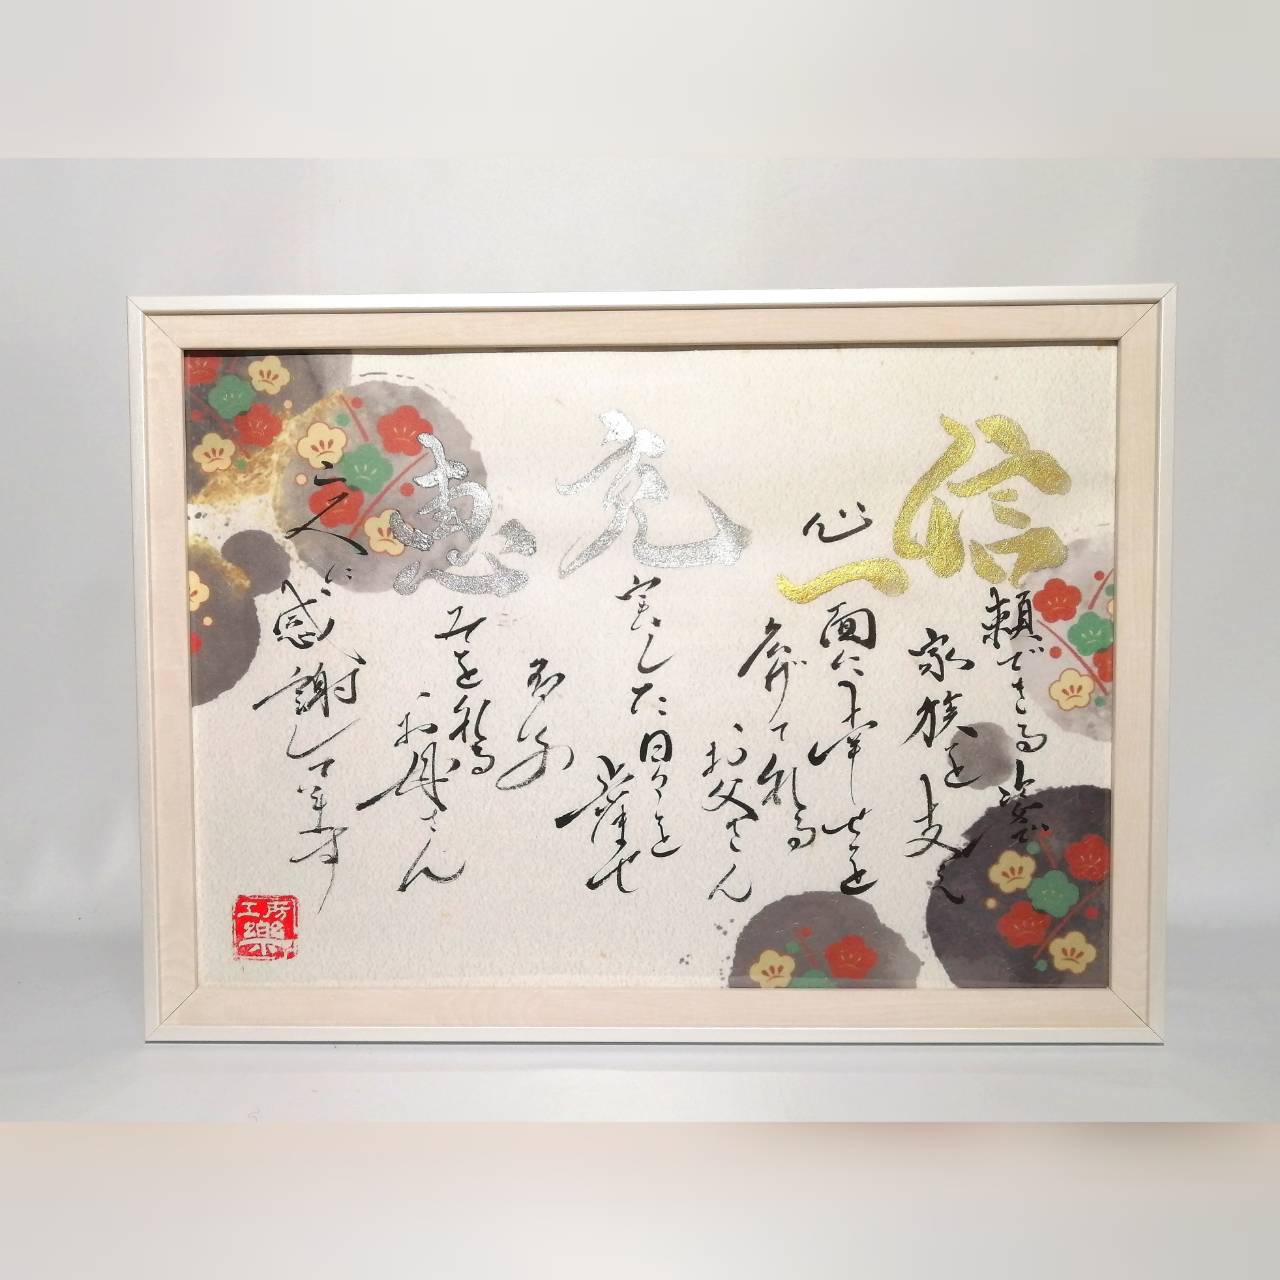 信頼できる姿で
家族を支え
心一面に幸せを
広げてくれる
お父さん
充実した日々を
恵みをくれる
お母さん
二人に
感謝してます
工房
樂